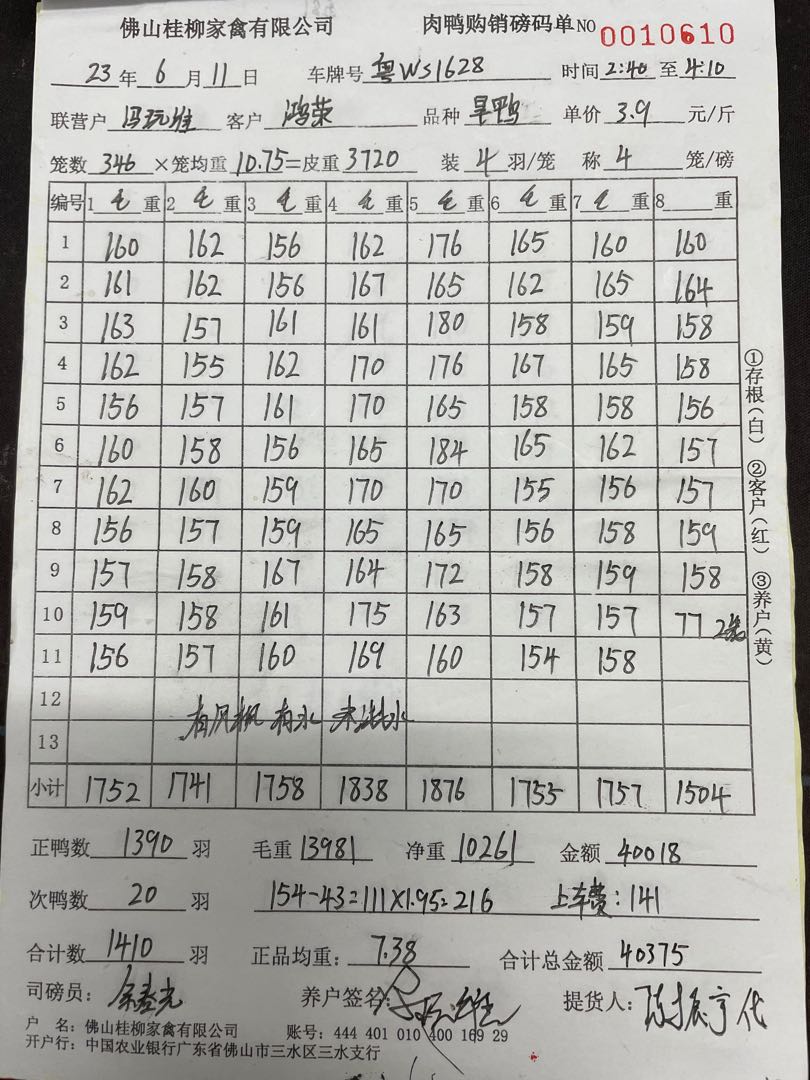 佛山桂柳家禽有限公司 肉鸭购销磅码单 NO 0010610
23年6月11日 车牌号 粤WS1628 时间 2:40 至 4:10
联营户 冯玩维 客户 鸿荣 品种 旱鸭 单价 3.9 元/斤
笼数 346 ×笼均重 10.75=皮重 3720 装 4 羽/笼 称 4 笼/磅
编号 1 毛 重 2 毛 重 3 毛 重 4 毛 重 5 毛 重 6 毛 重 7 毛 重 8 重
1 160 162 156 162 176 165 160 160
2 161 162 156 167 165 162 165 164
3 163 157 161 161 180 158 159 158
4 162 155 162 170 176 167 165 158
5 156 157 161 170 165 158 158 156
6 160 158 156 165 184 165 162 157
7 162 160 159 170 170 155 156 157
8 156 157 159 165 165 156 158 159
9 157 158 167 164 172 158 159 158
10 159 158 161 175 163 157 157 77 2笼
11 156 157 160 169 160 154 158
12 有风机 有水
13
小计 1752 1741 1758 1838 1876 1755 1757 1504
正鸭数 1390 羽 毛重 13981 净重 10261 金额 40018
次鸭数 20 羽 154-43=111×1.95=216 上车费:141
合计数 1410 羽 正品均重: 7.38 合计总金额 40375
司磅员: 养户签名: 提货人:
户 名: 佛山桂柳家禽有限公司 账号: 444 401 010 400 169 29
开户行: 中国农业银行广东省佛山市三水区三水支行
①存根(白) ②客户(红) ③养户(黄)